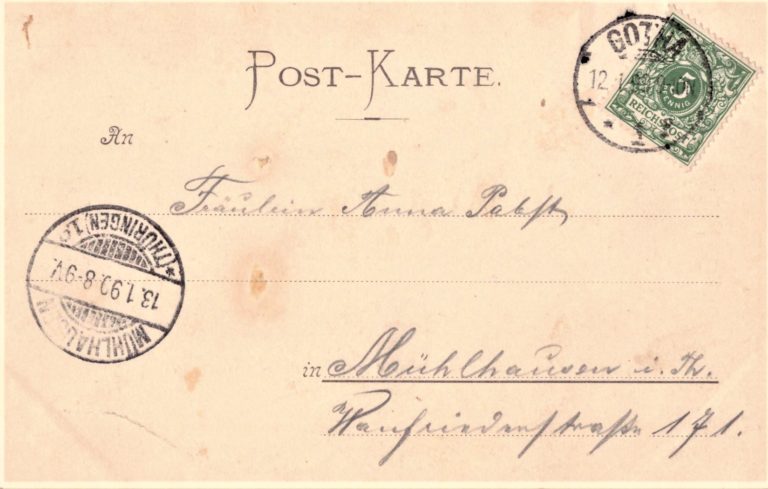 POST-KARTE.
GOTHA
12.1.
1
* 1 *
5
PFENNIG
REICHSPOST
An
Fräulein Anna Pabst
*(THÜRINGEN)1.
13.1.90.8-9V.
MÜHLHAUSEN
in Mühlhausen i. Th.
Wanfriederstraße 171.